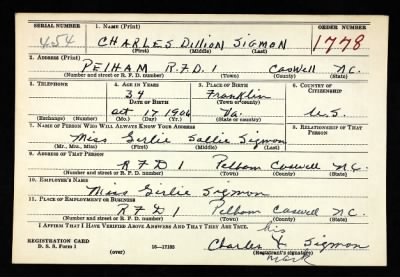 SERIAL NUMBER 1. NAME (Print) ORDER NUMBER
454 CHARLES DILLION SIGMON 1778
(First) (Middle) (Last)
2. ADDRESS (Print)
PELHAM R.F.D. 1 CASWELL N.C.
(Number and street or R. F. D. number) (Town) (County) (State)
3. TELEPHONE 4. AGE IN YEARS 5. PLACE OF BIRTH 6. COUNTRY OF CITIZENSHIP
34 Franklin
DATE OF BIRTH (Town or county)
Oct 17 1906 Va. U.S.
(Exchange) (Number) (Mo.) (Day) (Yr.) (State or country)
7. NAME OF PERSON WHO WILL ALWAYS KNOW YOUR ADDRESS 8. RELATIONSHIP OF THAT PERSON
Miss Girlie Sallie Sigmon
(Mr., Mrs., Miss) (First) (Middle) (Last)
9. ADDRESS OF THAT PERSON
RFD 1 Pelham Caswell N.C.
(Number and street or R. F. D. number) (Town) (County) (State)
10. EMPLOYER'S NAME
Miss Girlie Sigmon
11. PLACE OF EMPLOYMENT OR BUSINESS
RFD 1 Pelham Caswell N.C.
(Number and street or R. F. D. number) (Town) (County) (State)
I AFFIRM THAT I HAVE VERIFIED ABOVE ANSWERS AND THAT THEY ARE TRUE.
his
REGISTRATION CARD Charles X Sigmon
D. S. S. Form 1 (over) 16—17105 (Registrant's signature)
mark